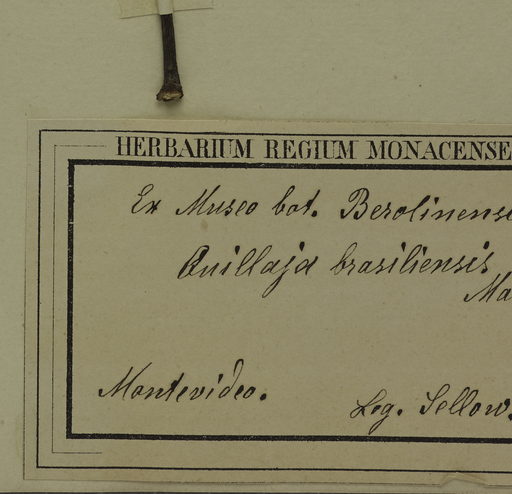 HERBARIUM REGIUM MONACENSE
Ex Museo bot. Berolinense
Quillaja brasiliensis
Ma
Montevideo.
Leg. Sellow.